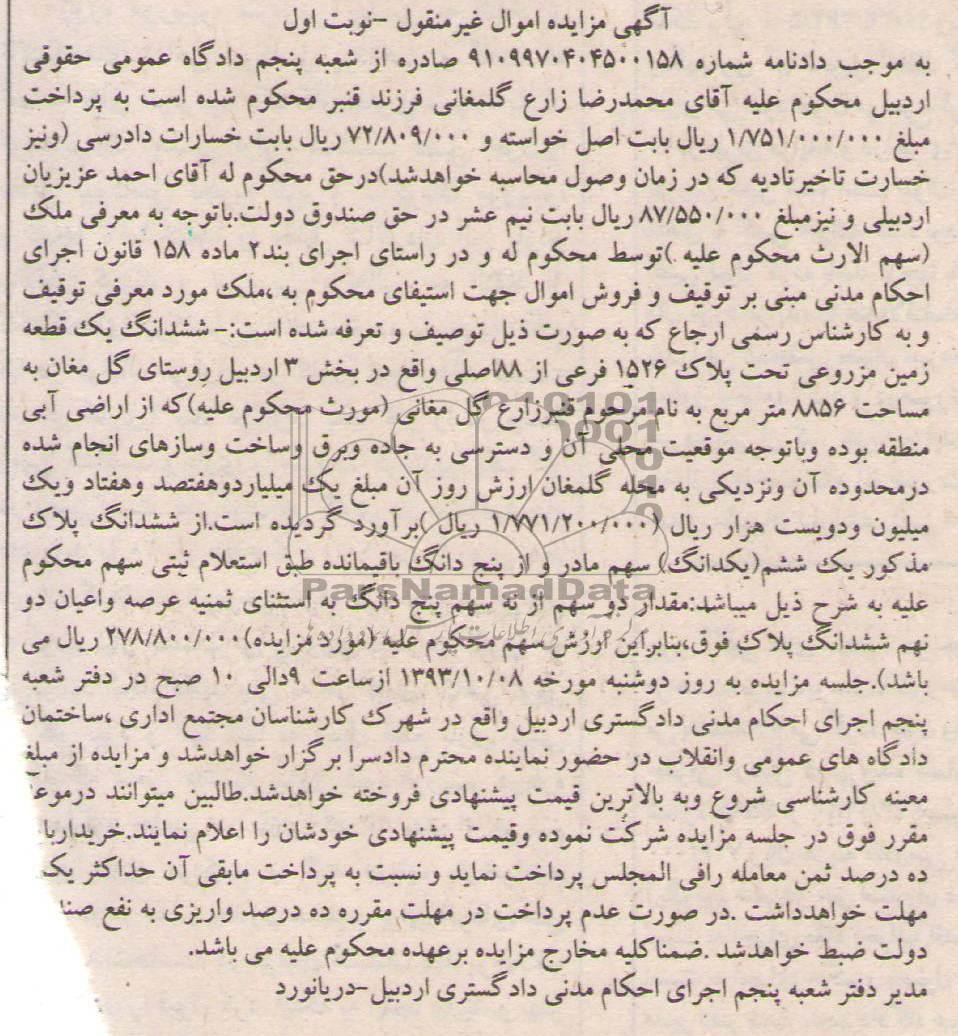 آگهی مزایده اموال غیرمنقول -نوبت اول
به موجب دادنامه شماره ۹۱۰۹۹۷۰۴۰۴۵۰۰۱۵۸ صادره از شعبه پنجم دادگاه عمومی حقوقی
اردبیل محکوم علیه آقای محمدرضا زارع گلمغانی فرزند قنبر محکوم شده است به پرداخت
مبلغ ۱/۷۵۱/۰۰۰/۰۰۰ ریال بابت اصل خواسته و ۷۲/۸۰۹/۰۰۰ ریال بابت خسارات دادرسی (ونیز
خسارت تاخیرتادیه که در زمان وصول محاسبه خواهدشد)درحق محکوم له آقای احمد عزیزیان
اردبیلی و نیزمبلغ ۸۷/۵۵۰/۰۰۰ ریال بابت نیم عشر در حق صندوق دولت.باتوجه به معرفی ملک
(سهم الارث محکوم علیه )توسط محکوم له و در راستای اجرای بند۲ ماده ۱۵۸ قانون اجرای
احکام مدنی مبنی بر توقیف و فروش اموال جهت استیفای محکوم به ،ملک مورد معرفی توقیف
و به کارشناس رسمی ارجاع که به صورت ذیل توصیف و تعرفه شده است:- ششدانگ یک قطعه
زمین مزروعی تحت پلاک ۱۵۲۶ فرعی از ۸۸اصلی واقع در بخش ۳ اردبیل روستای گل مغان به
مساحت ۸۸۵۶ متر مربع به نام مرحوم قنبرزارع گل مغانی (مورث محکوم علیه)که از اراضی آبی
منطقه بوده وباتوجه موقعیت محلی آن و دسترسی به جاده وبرق وساخت وسازهای انجام شده
درمحدوده آن ونزدیکی به محله گلمغان ارزش روز آن مبلغ یک میلیاردوهفتصد وهفتاد ویک
میلیون ودویست هزار ریال (۱/۷۷۱/۲۰۰/۰۰۰ ریال )برآورد گردیده است.از ششدانگ پلاک
مذکور یک ششم(یکدانگ) سهم مادر و از پنج دانگ باقیمانده طبق استعلام ثبتی سهم محکوم
ParsNamadData
علیه به شرح ذیل میباشد:مقدار دو سهم از نه سهم پنج دانگ به استثنای ثمنیه عرصه واعیان دو
نهم ششدانگ پلاک فوق،بنابراین ارزش سهم محکوم علیه (مورد مزایده) ۲۷۸/۸۰۰/۰۰۰ ریال می
باشد).جلسه مزایده به روز دوشنبه مورخه ۱۳۹۳/۱۰/۰۸ ازساعت ۹الی ۱۰ صبح در دفتر شعبه
پنجم اجرای احکام مدنی دادگستری اردبیل واقع در شهرک کارشناسان مجتمع اداری ،ساختمان
دادگاه های عمومی وانقلاب در حضور نماینده محترم دادسرا برگزار خواهدشد و مزایده از مبلغ
معینه کارشناسی شروع وبه بالاترین قیمت پیشنهادی فروخته خواهدشد.طالبین میتوانند درموعد
مقرر فوق در جلسه مزایده شرکت نموده وقیمت پیشنهادی خودشان را اعلام نمایند.خریدار
ده درصد ثمن معامله رافی المجلس پرداخت نماید و نسبت به پرداخت مابقی آن حداکثر یک
مهلت خواهدداشت .در صورت عدم پرداخت در مهلت مقرره ده درصد واریزی به نفع
دولت ضبط خواهدشد .ضمناکلیه مخارج مزایده برعهده محکوم علیه می باشد.
مدیر دفتر شعبه پنجم اجرای احکام مدنی دادگستری اردبیل-دریانورد